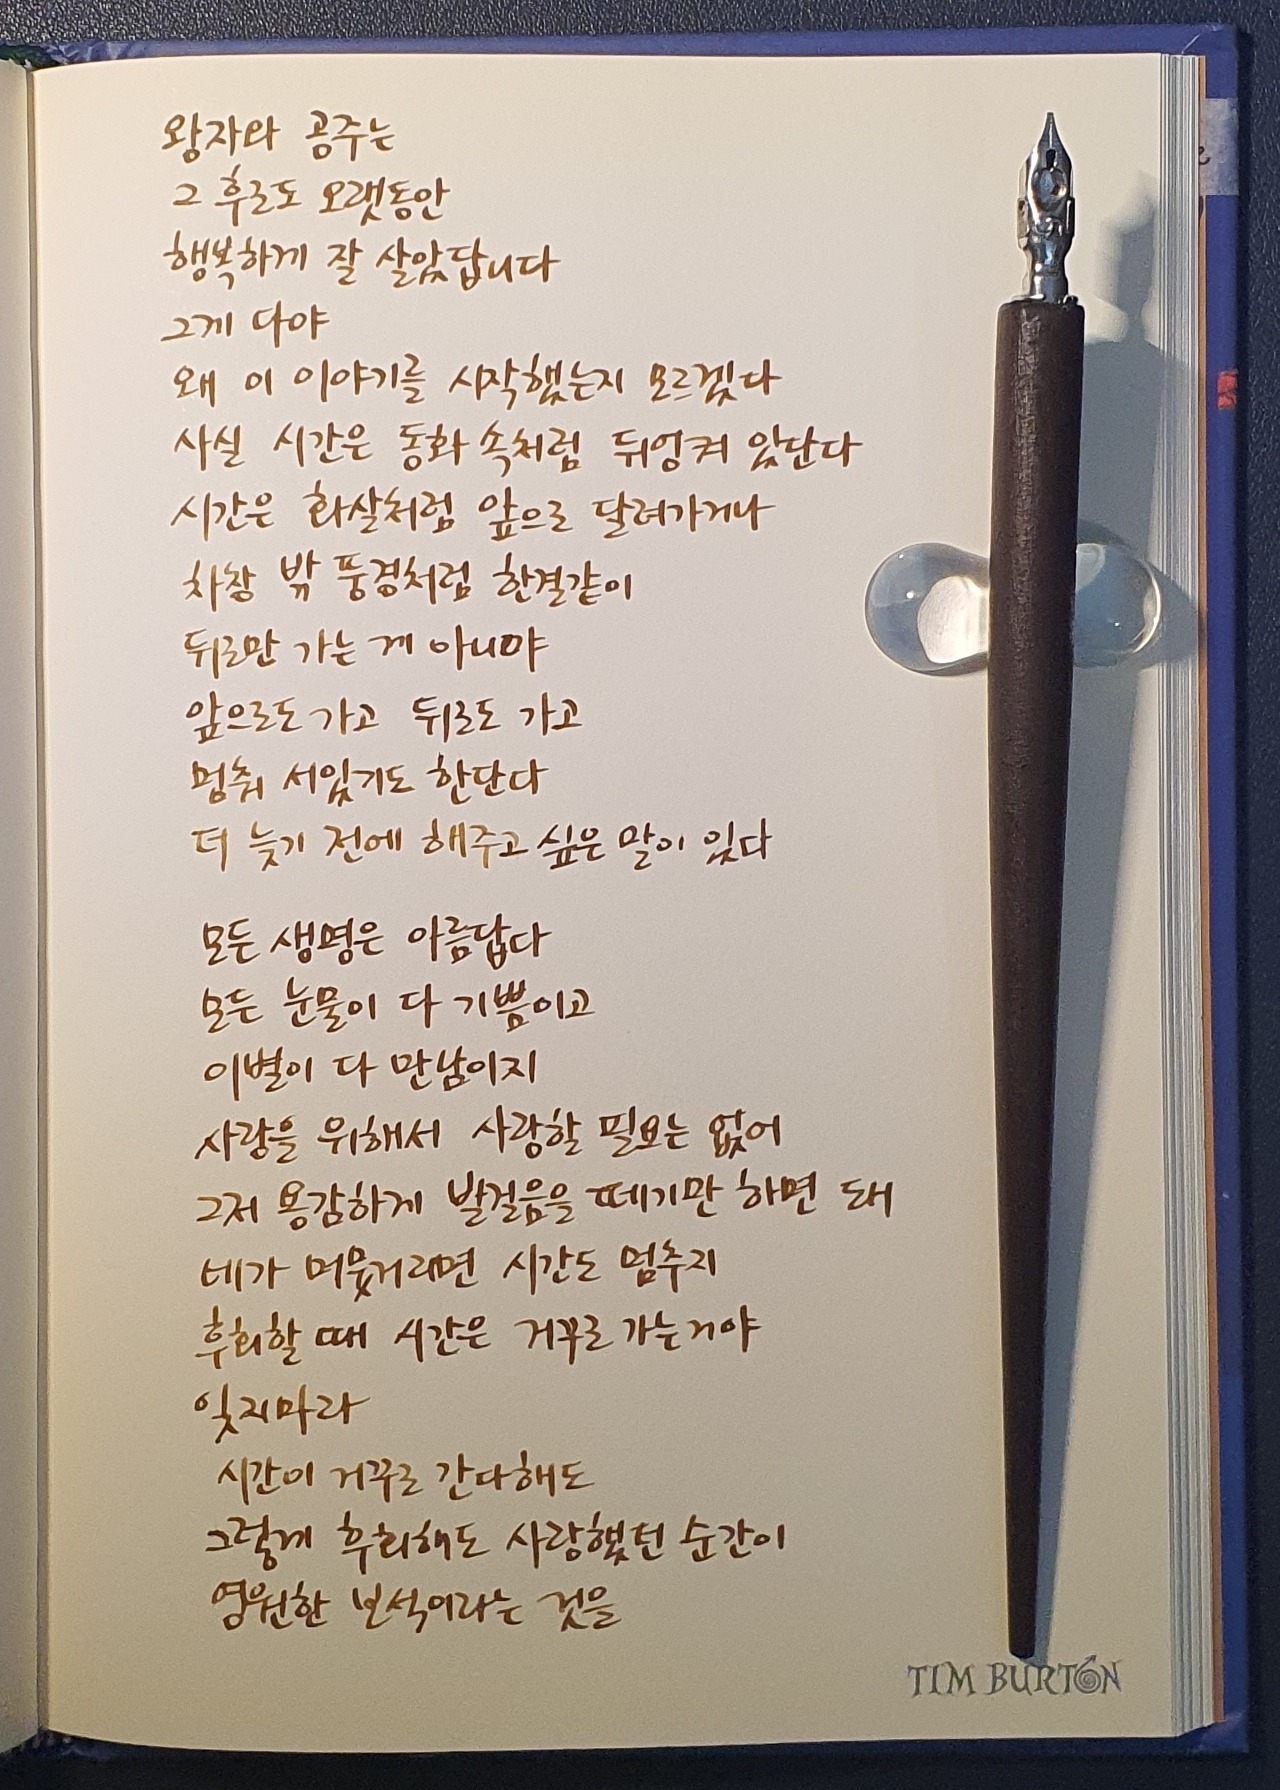 왕자와 공주는
그 후로도 오랫동안
행복하게 잘 살았답니다
그게 다야
왜 이 이야기를 시작했는지 모르겠다
사실 시간은 동화 속처럼 뒤엉켜 있단다
시간은 화살처럼 앞으로 달려가거나
차창 밖 풍경처럼 한결같이
뒤로만 가는 게 아니야
앞으로도 가고 뒤로도 가고
멈춰 서있기도 한단다
더 늦기 전에 해주고 싶은 말이 있다
모든 생명은 아름답다
모든 눈물이 다 기쁨이고
이별이 다 만남이지
사랑을 위해서 사랑할 필요는 없어
그저 용감하게 발걸음을 떼기만 하면 돼
네가 머뭇거리면 시간도 멈추지
후회할 때 시간은 거꾸로 가는거야
잊지마라
시간이 거꾸로 간다해도
그렇게 후회해도 사랑했던 순간이
영원한 보석이라는 것을
TIM BURTON